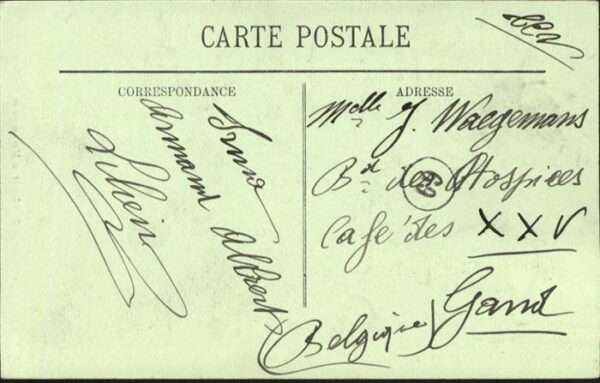 CARTE POSTALE
CORRESPONDANCE
Irma
Armand Albert
ADRESSE
Melle J. Waegemans
Bd des Hospices
Café des XXV
Gand
(Belgique)